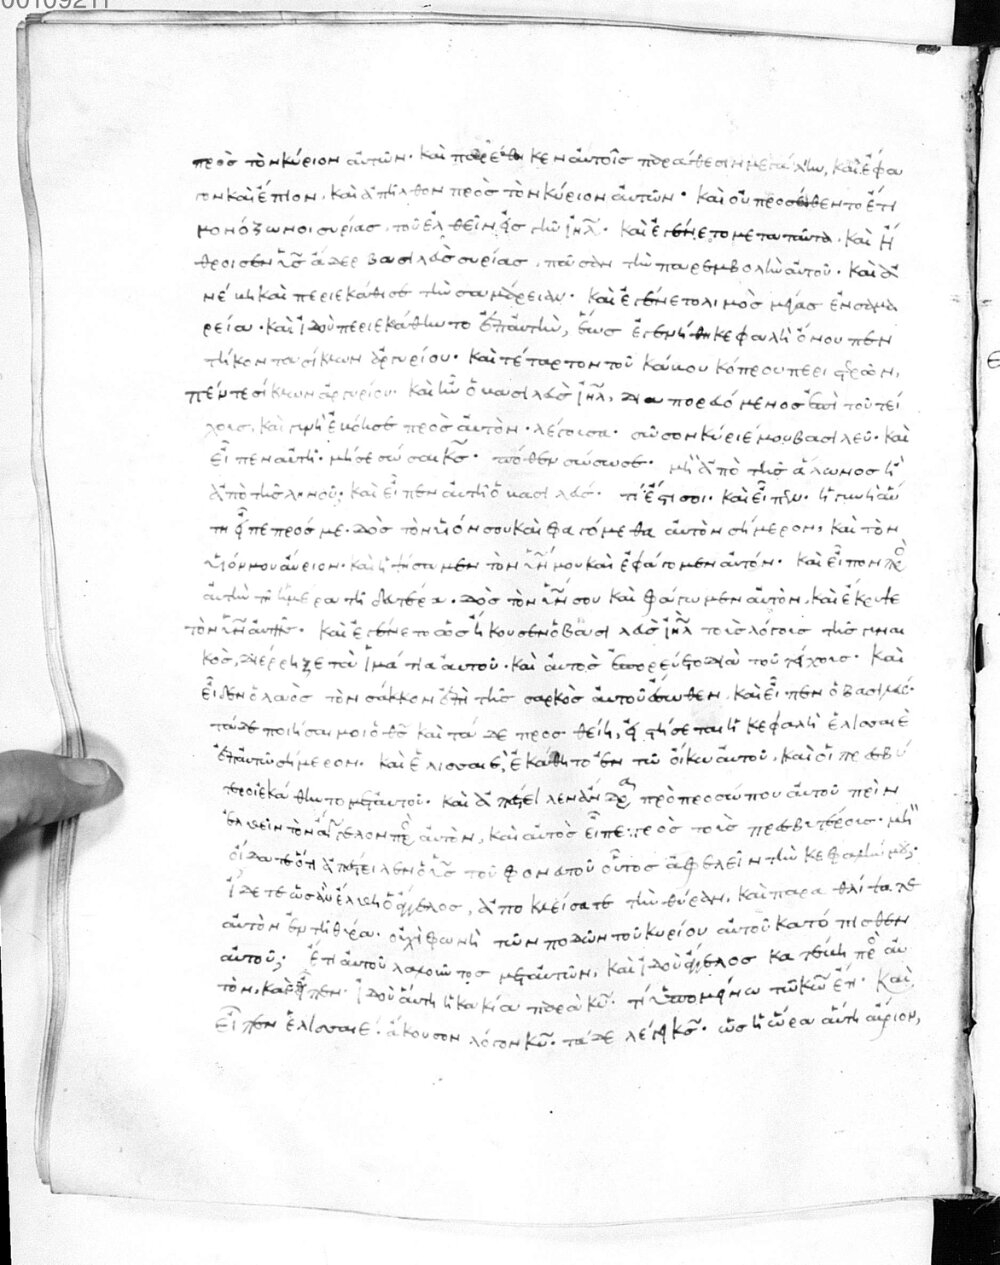 πρὸς τὸν κύριον αὐτῶν· καὶ παρέθηκεν αὐτοῖς παράθεσιν μεγάλην, καὶ ἔφα
γον καὶ ἔπιον, καὶ ἀπῆλθον πρὸς τὸν κύριον αὐτῶν· καὶ οὐ προσέθεντο ἔτι
μονόζωνοι συρίας, τοῦ ἐλθεῖν εἰς γῆν ἰηλ̅· καὶ ἐγένετο μετὰ ταῦτα, καὶ ἤ
θροισεν υἱὸς ἄδερ βασιλεὺς συρίας, πᾶσαν τὴν παρεμβολὴν αὐτοῦ· καὶ ἀ
νέβη καὶ περιεκάθισε τὴν σαμάρειαν· καὶ ἐγένετο λιμὸς μέγας ἐν σαμα
ρεία· καὶ ἰδοὺ περιεκάθηντο ἐπ' αὐτὴν, ἕως ἐγενήθη κεφαλὴ ὄνου πεν
τήκοντα σίκλων ἀργυρίου· καὶ τέταρτον τοῦ κάβου κόπρου περιστερῶν,
πέντε σίκλων ἀργυρίου· καὶ ἦν ὁ βασιλεὺς ἰηλ̅, διαπορευόμενος ἐπὶ τοῦ τεί
χους, καὶ γυνὴ ἐβόησε πρὸς αὐτὸν, λέγουσα· σῶσον κύριέ μου βασιλεῦ· καὶ
εἶπεν αὐτῆ· μή σε σώσαι κς̅· πόθεν σώσω σε· μὴ ἀπὸ τῆς ἅλωνος ἢ
ἀπὸ τῆς ληνοῦ; καὶ εἶπεν αὐτῆ ὁ βασιλεύς· τί ἐστί σοι· καὶ εἶπεν· ἡ γυνὴ αὕ
τη εἶπε πρός με· δὸς τὸν υἱόν σου καὶ φαγόμεθα αὐτὸν σήμερον, καὶ τὸν
υἱόν μου αὔριον· καὶ ἡψήσαμεν τὸν υἱόν μου καὶ ἐφάγομεν αὐτόν· καὶ εἶπον πρὸς
αὐτὴν τῆ ἡμέρα τῆ δευτέρα· δὸς τὸν υἱόν σου καὶ φάγωμεν αὐτὸν, καὶ ἔκρυψε
τὸν υἱὸν αὐτῆς· καὶ ἐγένετο ὡς ἤκουσεν ὁ βασιλεὺς ἰηλ̅ τοὺς λόγους τῆς γυναι
κὸς, διέρρηξε τὰ ἱμάτια αὐτοῦ· καὶ αὐτὸς ἐπορεύετο διὰ τοῦ τείχους· καὶ
εἶδεν ὁ λαὸς τὸν σάκκον ἐπὶ τῆς σαρκὸς αὐτοῦ ἔσωθεν, καὶ εἶπεν ὁ βασιλεύς·
τάδε ποιήσαι μοι ὁ θς̅ καὶ τάδε προσθείη, εἰ στήσεται ἡ κεφαλὴ ἐλισσαιὲ
ἐπ' αὐτῶ σήμερον· καὶ ἐλισσαιὲ, ἐκάθητο ἐν τῶ οἴκω αὐτοῦ, καὶ οἱ πρεσβύ
τεροι ἐκάθηντο μετ' αὐτοῦ· καὶ ἀπέστειλεν ἄνδρα πρὸ προσώπου αὐτοῦ πρὶν
ἐλθεῖν τὸν ἄγγελον πρὸς αὐτὸν, καὶ αὐτὸς εἶπε πρὸς τοὺς πρεσβυτέρους· μὴ
οἴδατε ὅτι ἀπέστειλεν ὁ υἱὸς τοῦ φονευτοῦ οὗτος ἀφελεῖν τὴν κεφαλήν μου·
ἴδετε ὡς ἂν ἔλθη ὁ ἄγγελος, ἀποκλείσατε τὴν θύραν, καὶ παραθλίψατε
αὐτὸν ἐν τῆ θύρα· οὐχὶ φωνὴ τῶν ποδῶν τοῦ κυρίου αὐτοῦ κατόπισθεν
αὐτοῦ; ἔτι αὐτοῦ λαλοῦντος μετ' αὐτῶν, καὶ ἰδοὺ ἄγγελος κατέβη πρὸς αὐ
τὸν, καὶ εἶπεν· ἰδοὺ αὕτη ἡ κακία παρὰ κυ̅· τί ὑπομένω τῶ κω̅ ἔτι· καὶ
εἶπεν ἐλισσαιέ· ἄκουσον λόγον κυ̅· τάδε λέγει κς̅· ὡς ἡ ὥρα αὕτη αὔριον,